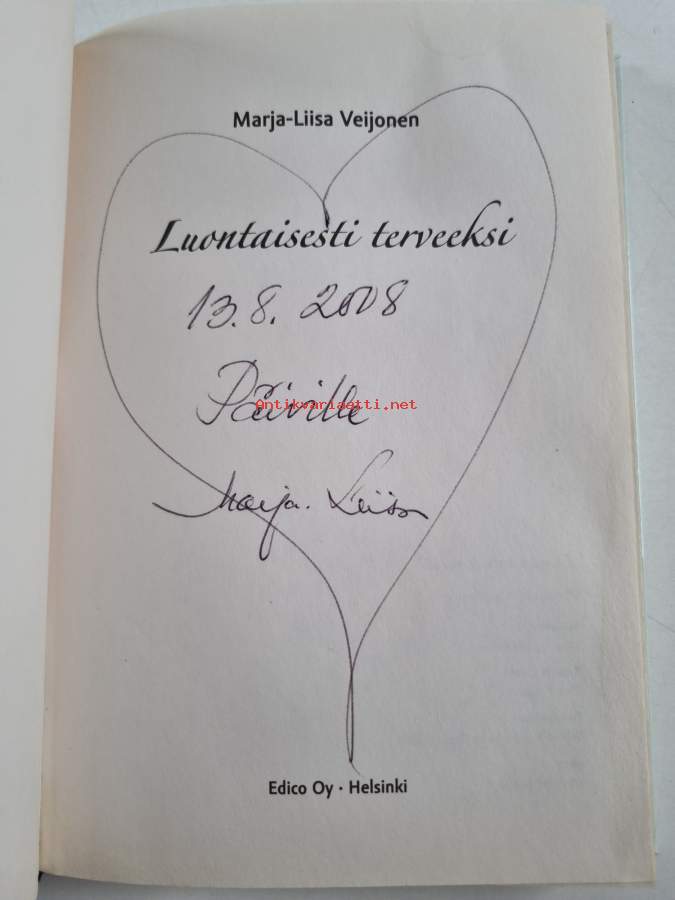 Marja-Liisa Veijonen
Luontaisesti terveeksi
13.8.2008
Päiville
Antikvariaatti.net
Marja-Liisa
Edico Oy · Helsinki